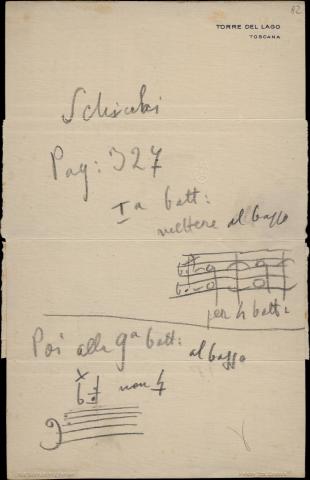 82
TORRE DEL LAGO
TOSCANA
Schicchi
Pag: 327
Iª batt:
mettere al basso
per 4 batt:
Poi alla 9ª batt: al basso
non